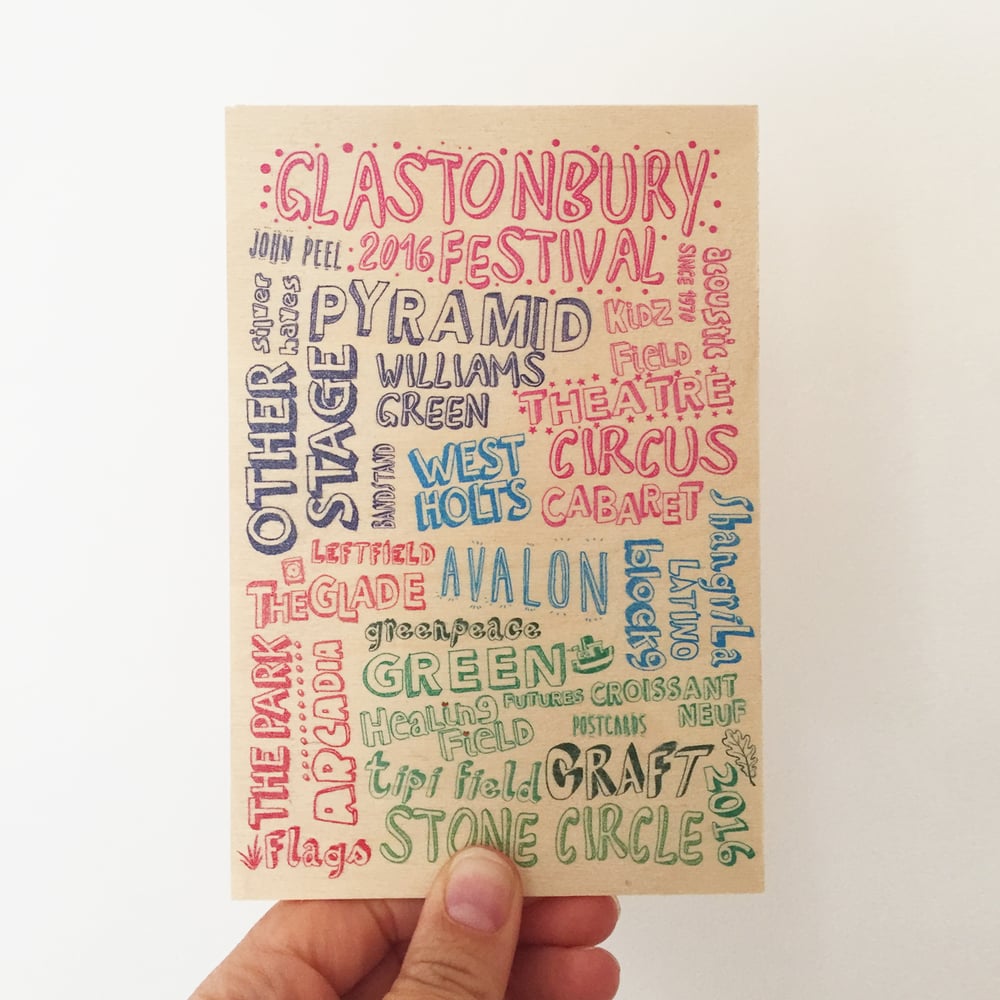 GLASTONBURY
2016 FESTIVAL
JOHN PEEL
SINCE 1970
acoustic
silver
hayes
PYRAMID
STAGE
OTHER
KidZ
Field
WILLIAMS
GREEN
THEATRE
CIRCUS
CABARET
BANDSTAND
WEST
HOLTS
Shangri La
LEFTFIELD
THE GLADE
AVALON
block9
LATINO
THE PARK
ARCADIA
greenpeace
GREEN
FUTURES
CROISSANT
NEUF
Healing
Field
POSTCARDS
tipi field
CRAFT
2016
flags
STONE CIRCLE